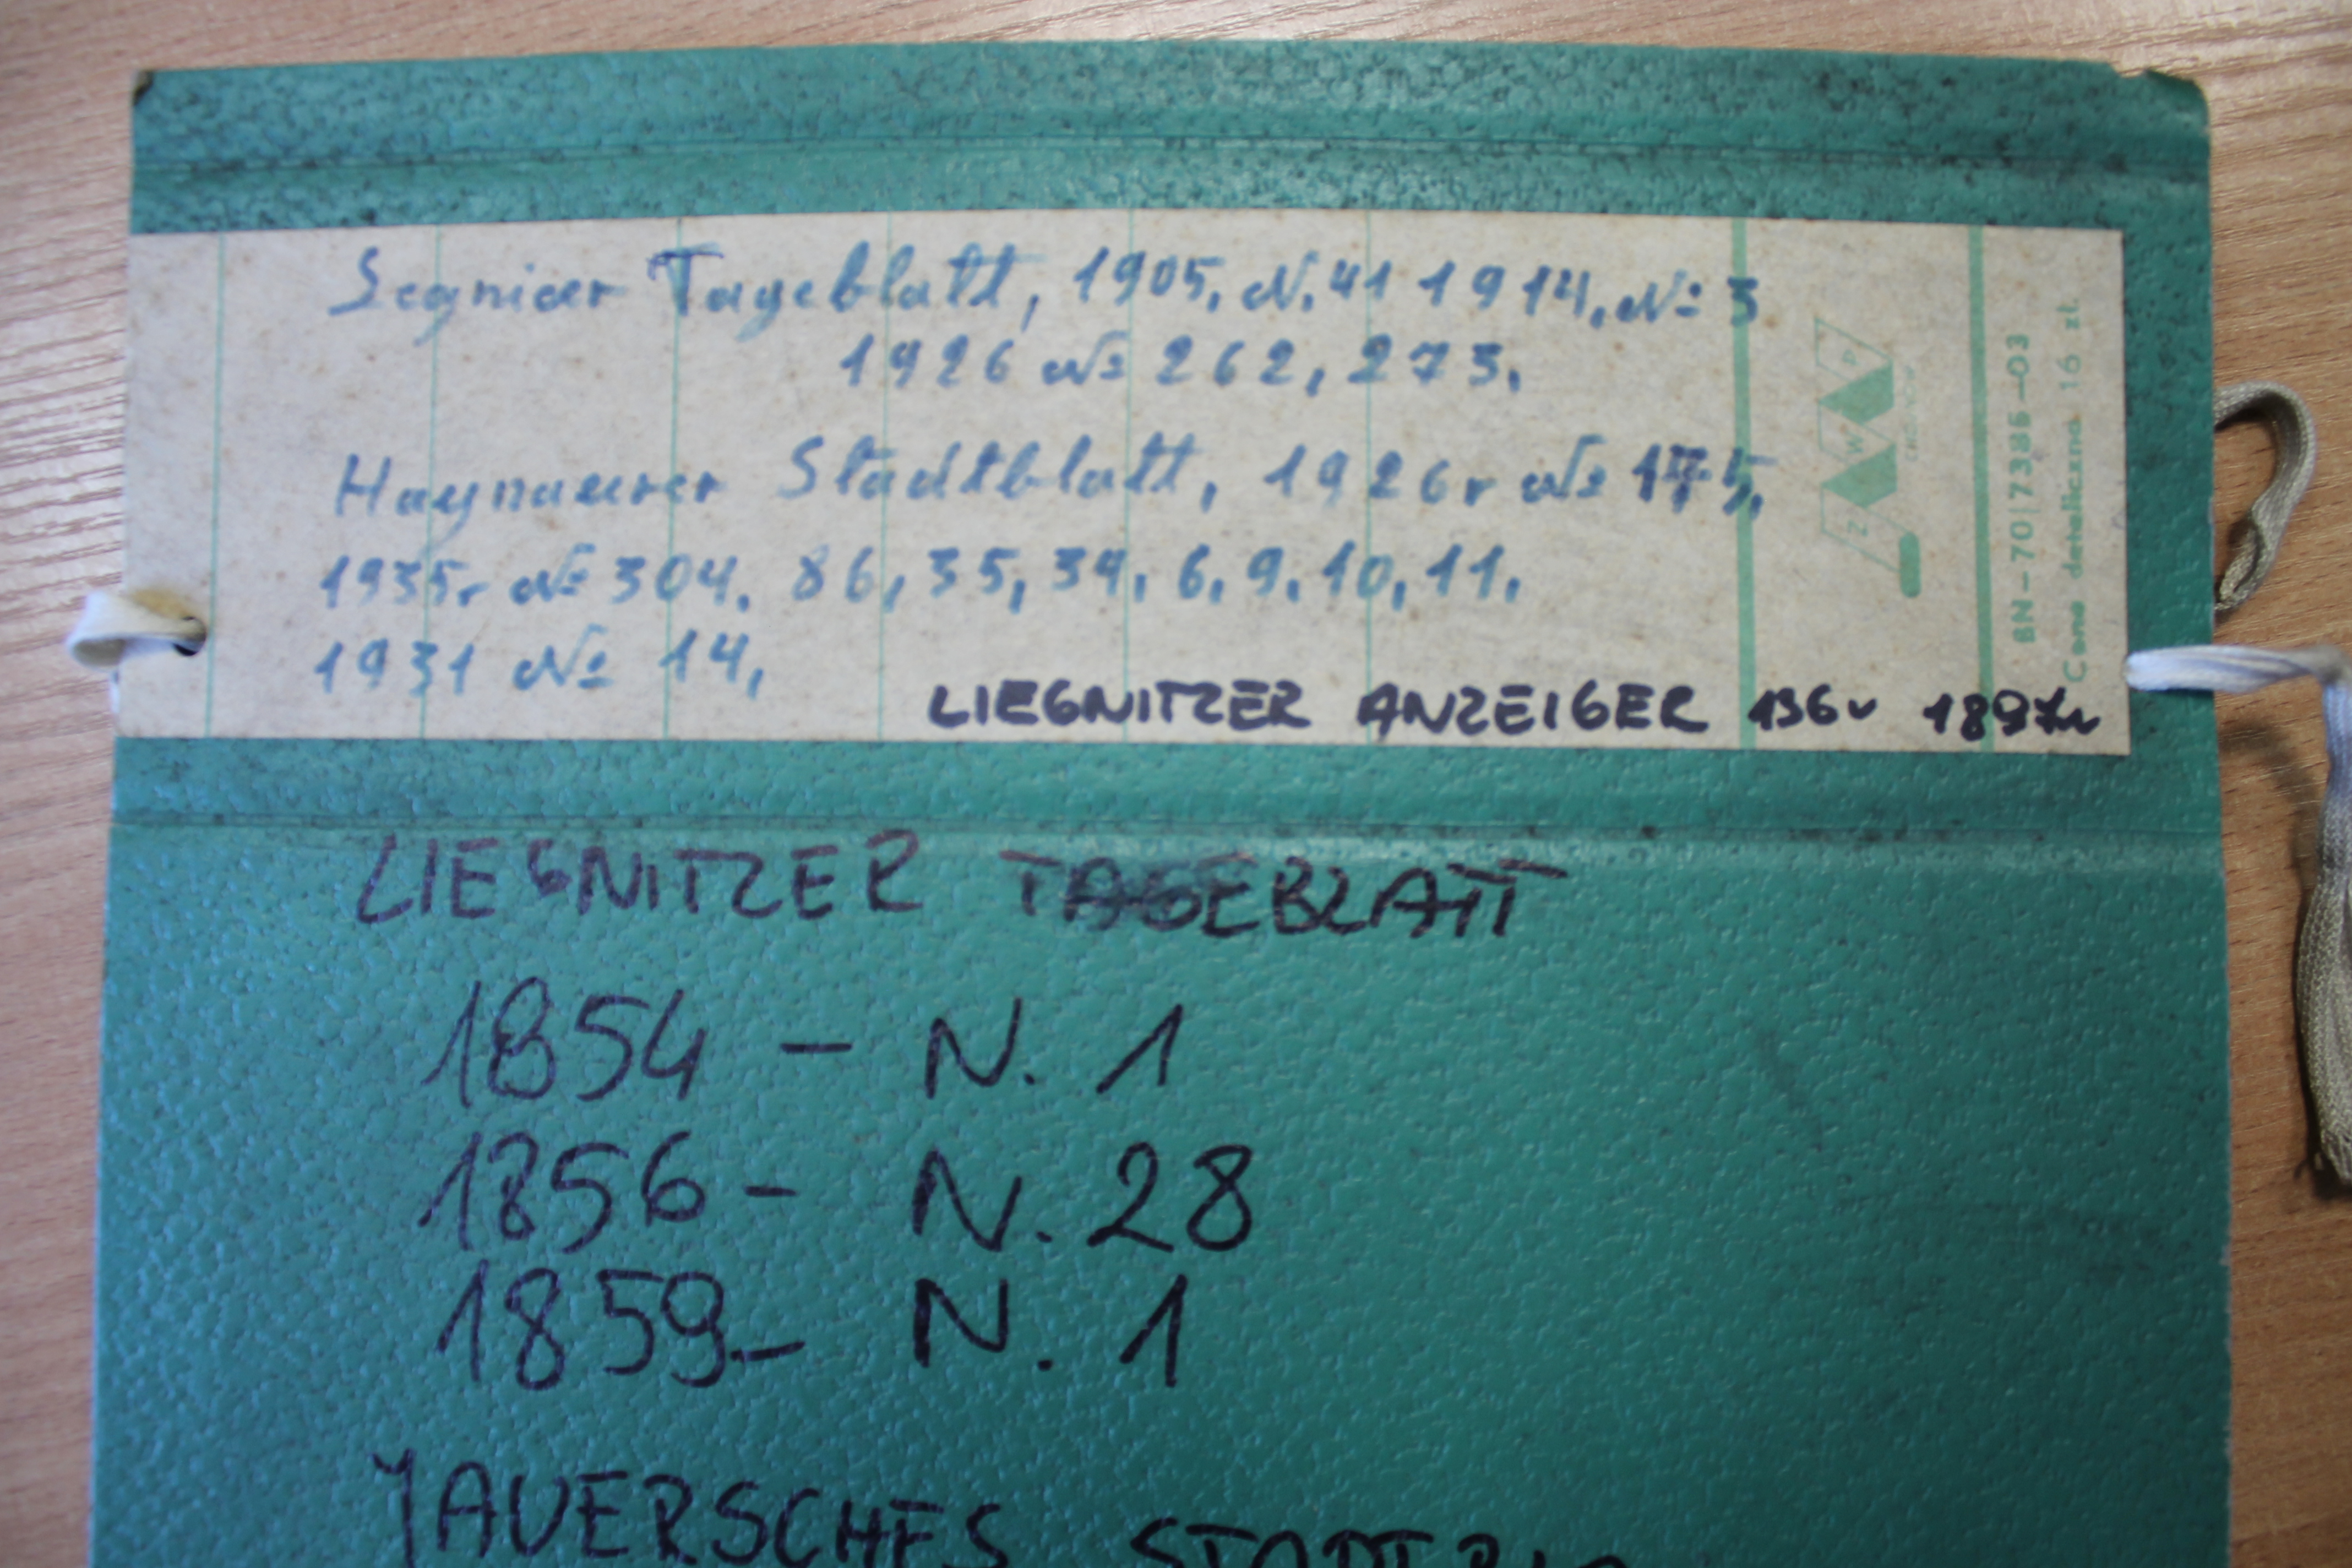 Segnicer Tageblatt, 1905, N. 41 1914, № 3
1926 № 262, 273.
Haynauerer Stadtblatt, 1926r № 175,
1935r № 304, 86, 35, 34, 6, 9, 10, 11.
1931 № 14,
LIEGNITZER ANZEIGER 1897r
Z W P
BN-70|7386-03
Cena detaliczna 16 zł
LIEGNITZER TAGEBLATT
1854 - N. 1
1856 - N. 28
1859 - N. 1
JAUERSCHES